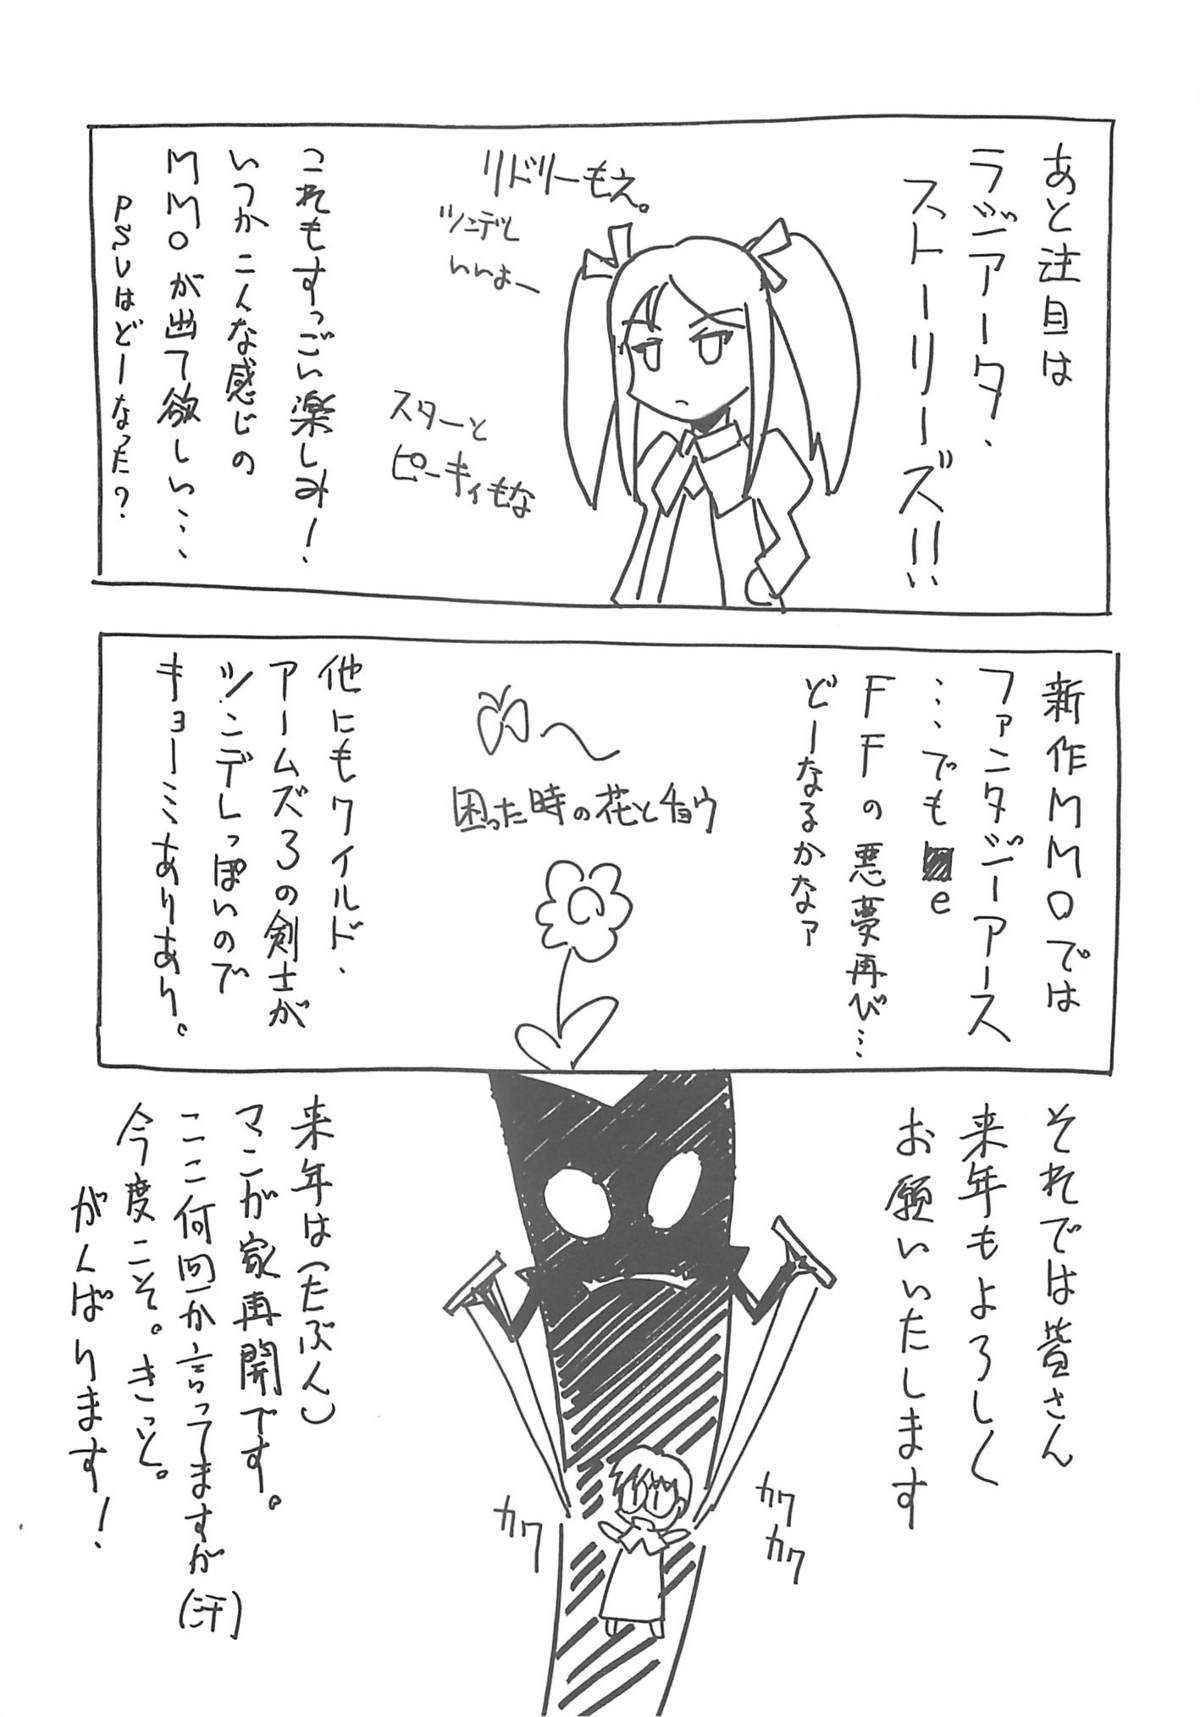 あと注目は
ラジアータ・
ストーリーズ!!
リドリーもえ。
ツンデレ
いいよー
スターと
ピーキィもな
これもすっごい楽しみ!
いつかこんな感じの
MMOが出て欲しい…
PSUはどーなった?
新作MMOでは
ファンタジーアース
…でも e
FFの悪夢再び…
どーなるかなァ
困った時の花とチョウ
他にもワイルド・
アームズ3の剣士が
ツンデレっぽいので
キョーミありあり。
それでは皆さん
来年もよろしく
お願いいたします
カク
カク
カク
来年は(たぶん)
マンが家再開です。
ここ何回か言ってますが(汗)
今度こそ。きっと。
がんばります!